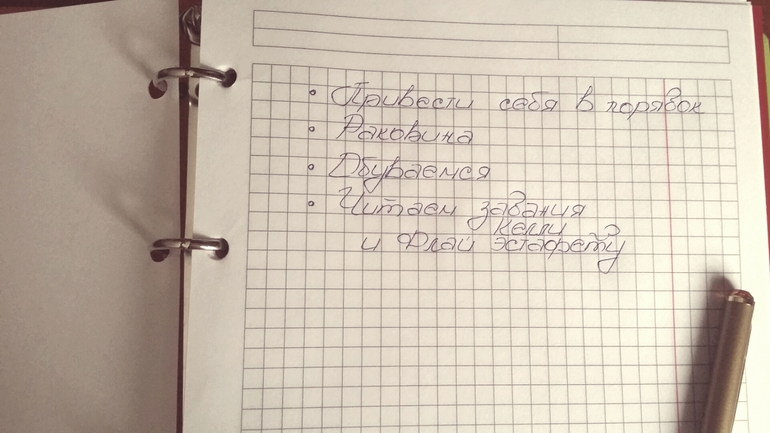 • Привести себя в порядок
• Раковина
• Обуваемся
• Читаем задания
келли
и Флай эстафету